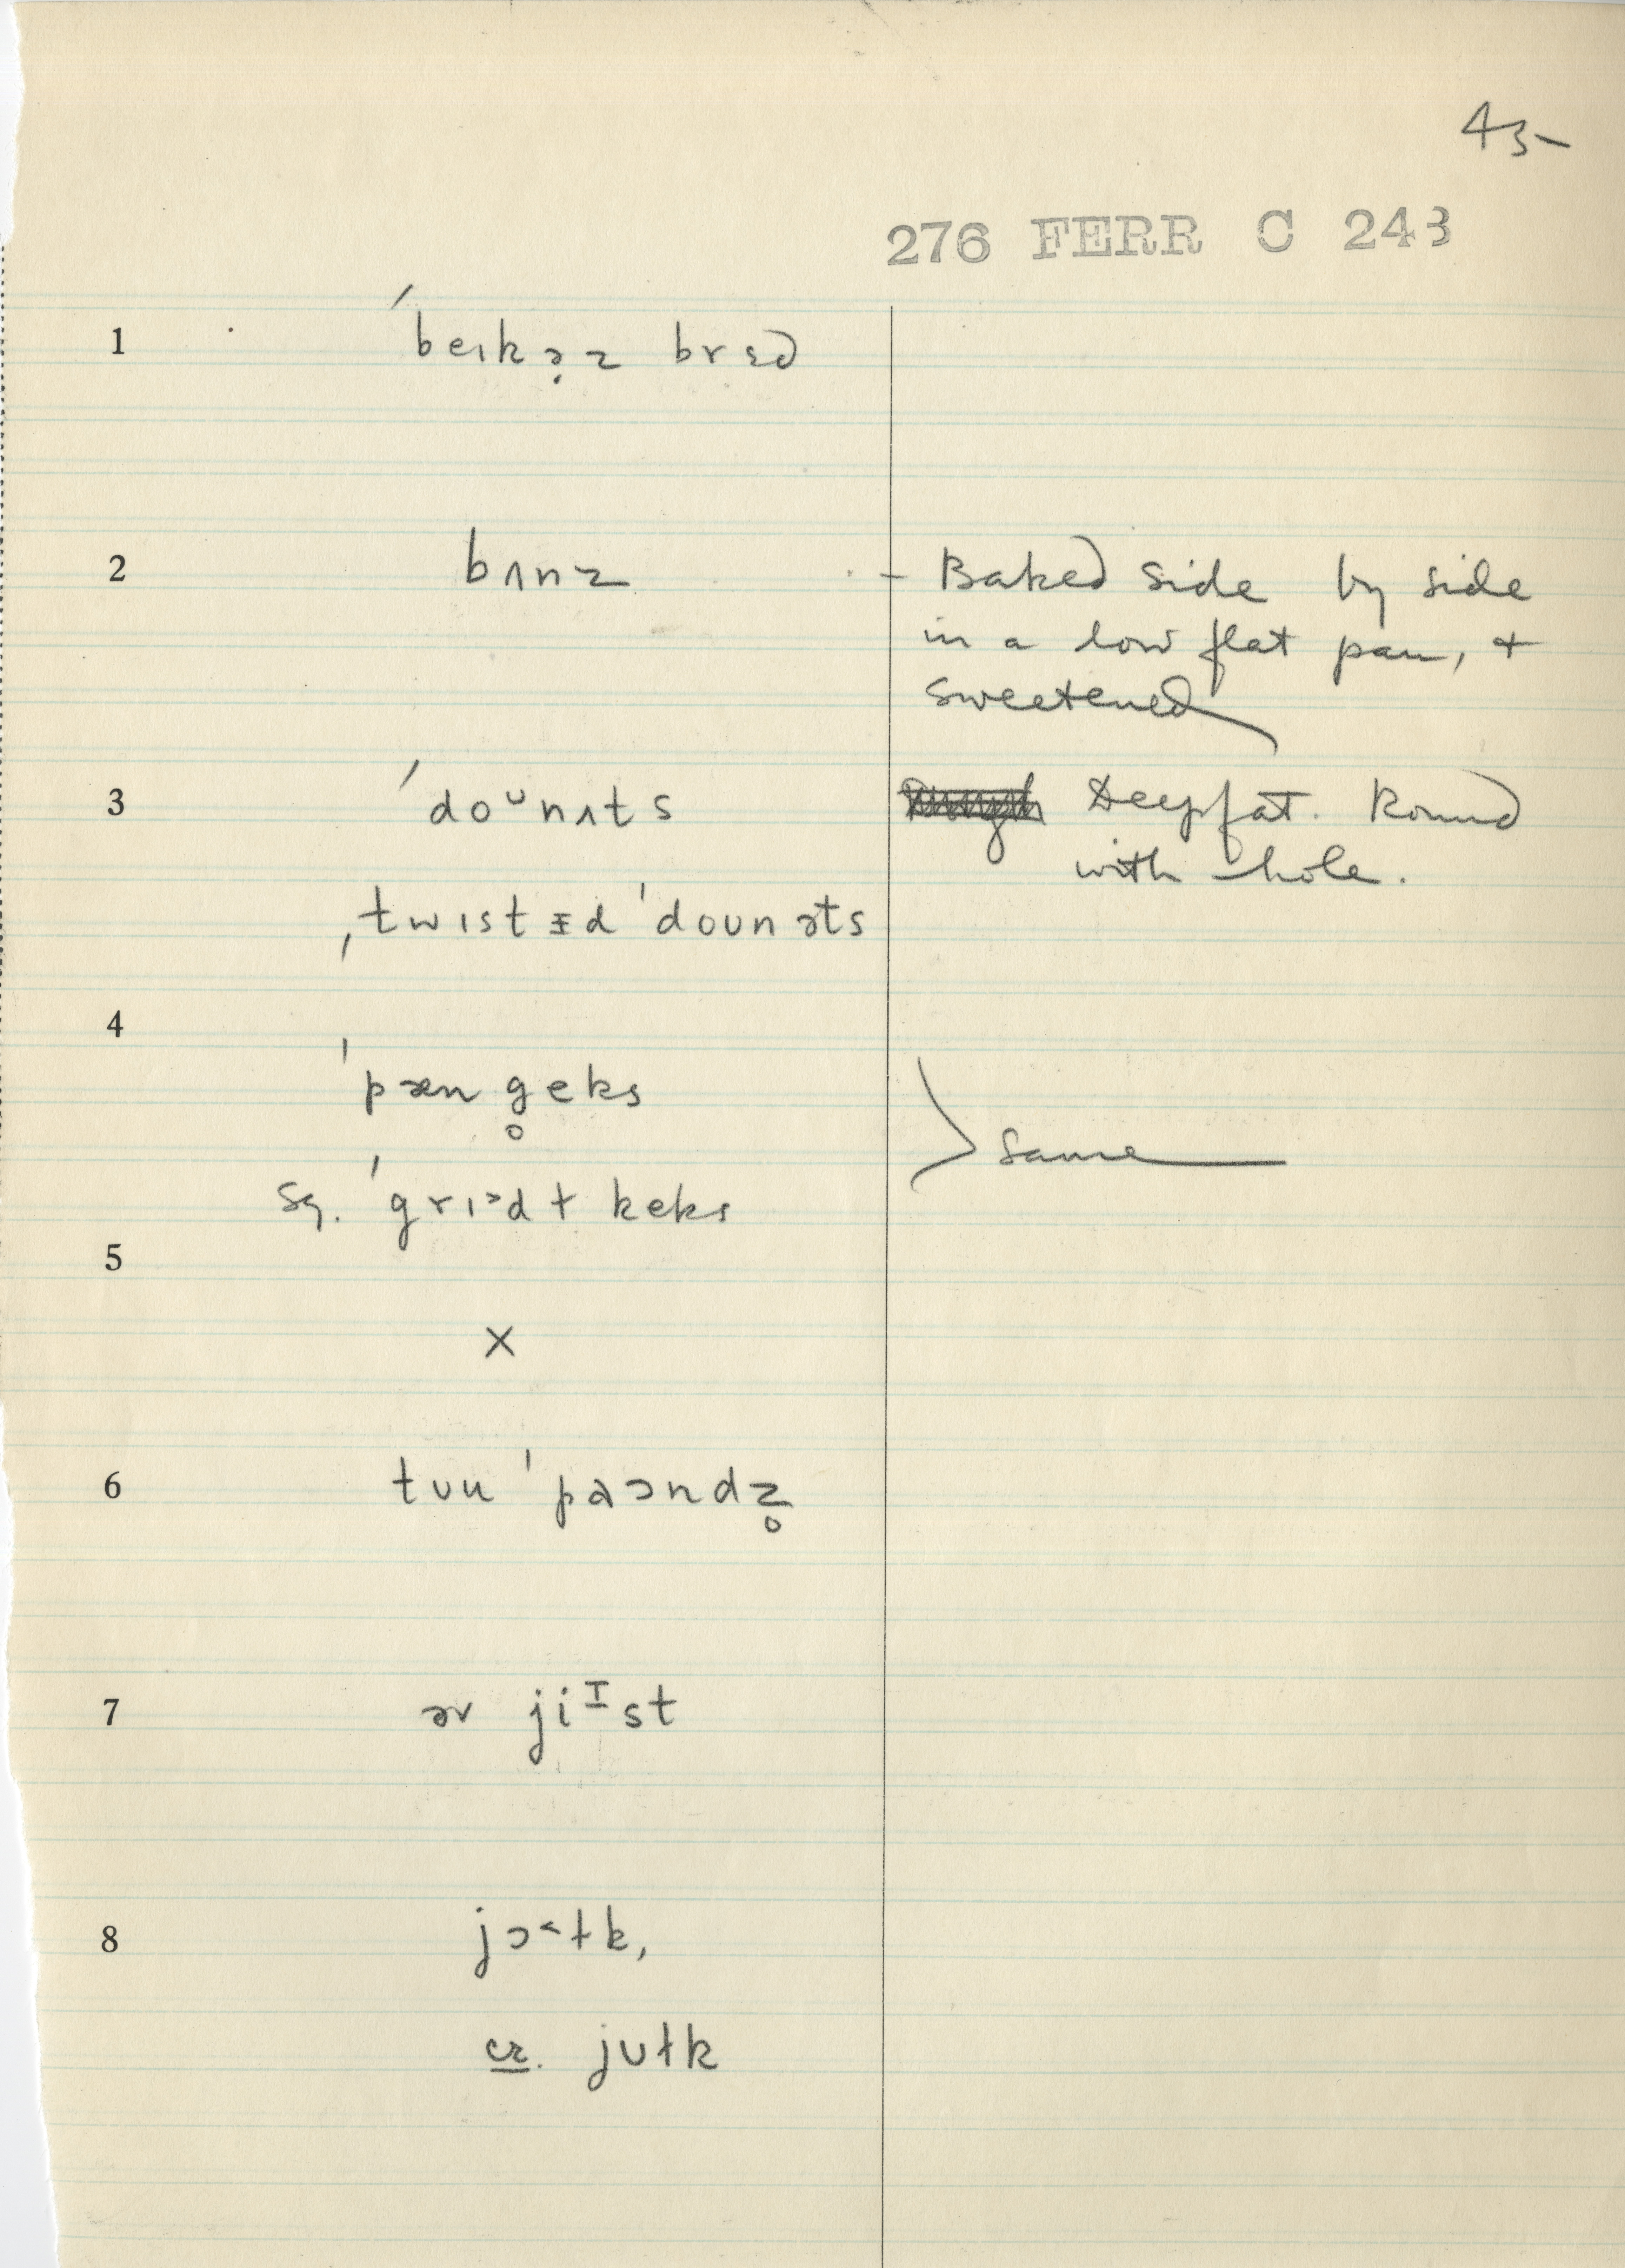 45
276 FERR C 243
1 ˈbeɪkə̣z brɛd
2 bʌnz - Baked side by side
in a low flat pan, +
sweetened
3 ˈdoᶷnʌts Deepfat. Round
with hole.
ˌtwɪstᵻd ˈdoʊnəts
4
ˈpæn g̥eks
same
sg. ˈgrɪᵊdɫ keks
5
X
6 tʊu ˈpaɔndz̥
7 əv jiᶦst
8 jɔ˂ɫk,
cr. jʊɫk